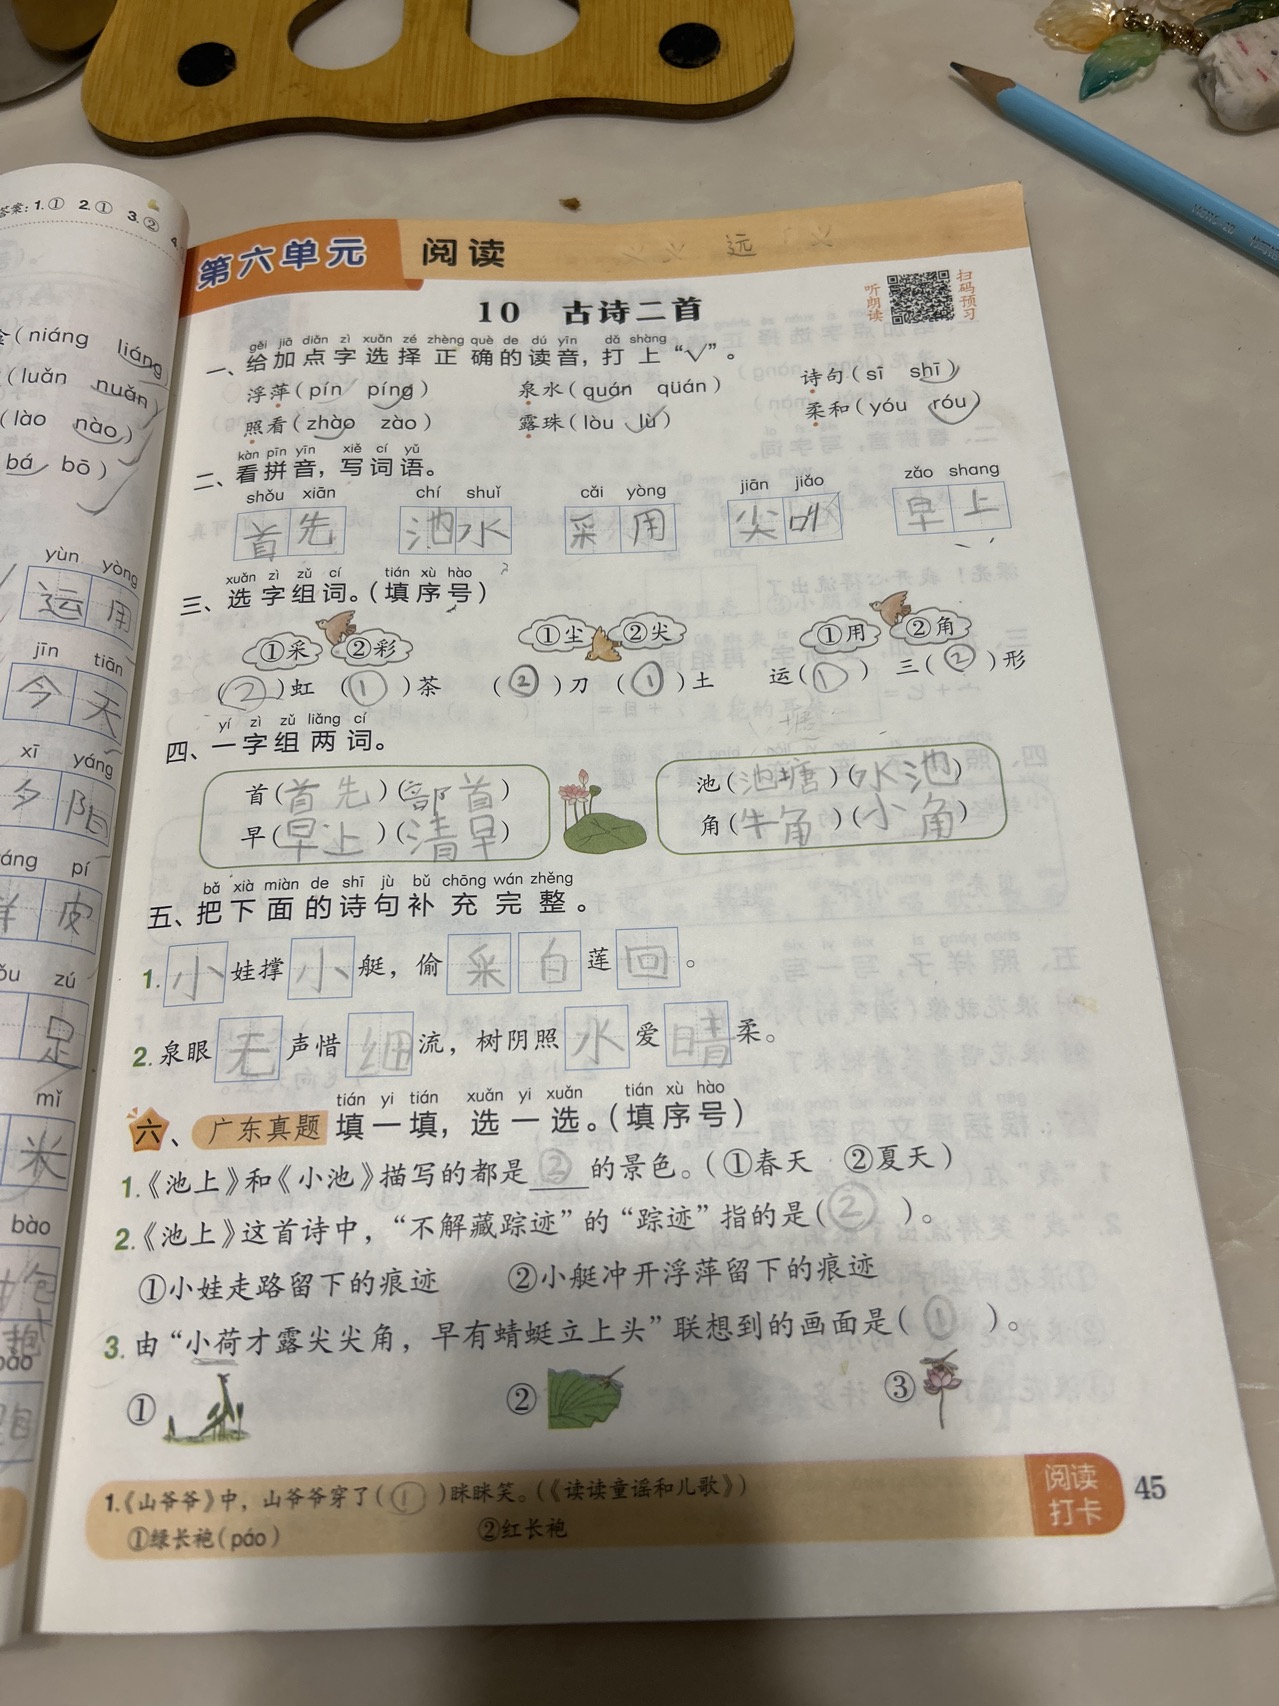 答案：1.① 2.① 3.②
(niáng liáng
(luǎn nuǎn)
(lào nào)
bá bō)
yùn yòng
运用
jīn tiān
今天
xī yáng
夕阳
áng pí
皮
zú
足
mǐ
米
bào
包
第六单元 阅读 远
10 古诗二首
听朗读 扫码预习
gěi jiā diǎn zì xuǎn zé zhèng què de dú yīn dǎ shàng
一、给加点字选择正确的读音，打上“√”。
浮萍(pín píng) 泉水(quán qüán) 诗句(sī shī)
照看(zhào zào) 露珠(lòu lù) 柔和(yóu róu)
kàn pīn yīn xiě cí yǔ
二、看拼音，写词语。
shǒu xiān chí shuǐ cǎi yòng jiān jiǎo zǎo shang
首先 池水 采用 尖叫 早上
xuǎn zì zǔ cí tián xù hào
三、选字组词。(填序号)
①采 ②彩 ①尘 ②尖 ①用 ②角
(2)虹 (1)茶 (2)刀 (1)土 运(1) 三(2)形
yí zì zǔ liǎng cí
四、一字组两词。
首(首先)(部首) 池(池塘)(水池)
早(早上)(清早) 角(牛角)(小角)
bǎ xià miàn de shī jù bǔ chōng wán zhěng
五、把下面的诗句补充完整。
1. 小娃撑小艇，偷采自莲回。
2. 泉眼无声惜细流，树阴照水爱晴柔。
tián yi tián xuǎn yi xuǎn tián xù hào
六、广东真题 填一填，选一选。(填序号)
1.《池上》和《小池》描写的都是②的景色。(①春天 ②夏天)
2.《池上》这首诗中，“不解藏踪迹”的“踪迹”指的是(②)。
①小娃走路留下的痕迹 ②小艇冲开浮萍留下的痕迹
3. 由“小荷才露尖尖角，早有蜻蜓立上头”联想到的画面是(①)。
① ② ③
1.《山爷爷》中，山爷爷穿了(①)眯眯笑。(《读读童谣和儿歌》)
①绿长袍(páo) ②红长袍
阅读打卡 45